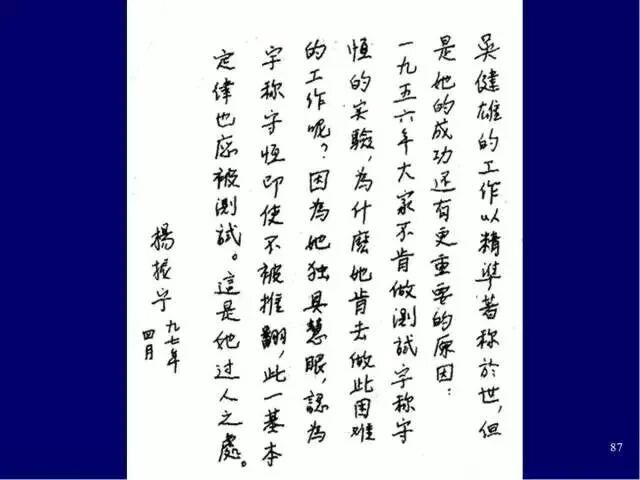 吳健雄的工作以精準著称於世，但
是她的成功还有更重要的原因：
一九五六年大家不肯做測試宇称守
恒的实驗，為什麽她肯去做此困难
的工作呢？因為她独具慧眼，認為
宇称守恒即使不被推翻，此一基本
定律也应被測試。這是她过人之處。
楊振宁
九七年
四月
87